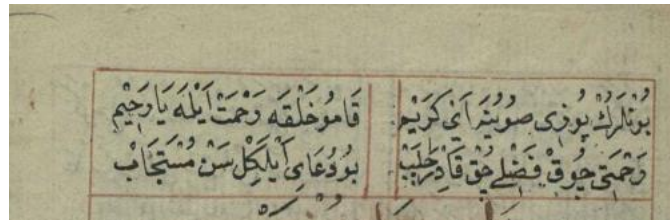 بُونْلَرُكْ يُوزِى صُويُنَه آنِى كَرِيمْ قَامُو خَلْقَه رَحْمَتْ اَيْلَه يَا رَحِيمْ
رَحْمَتِى چُوقْ فَضْلِى چُقْ قَادِرْ چَلَبْ بُو دُعَايِ اَيْلَكِلْ سَنْ مُسْتَجَابْ